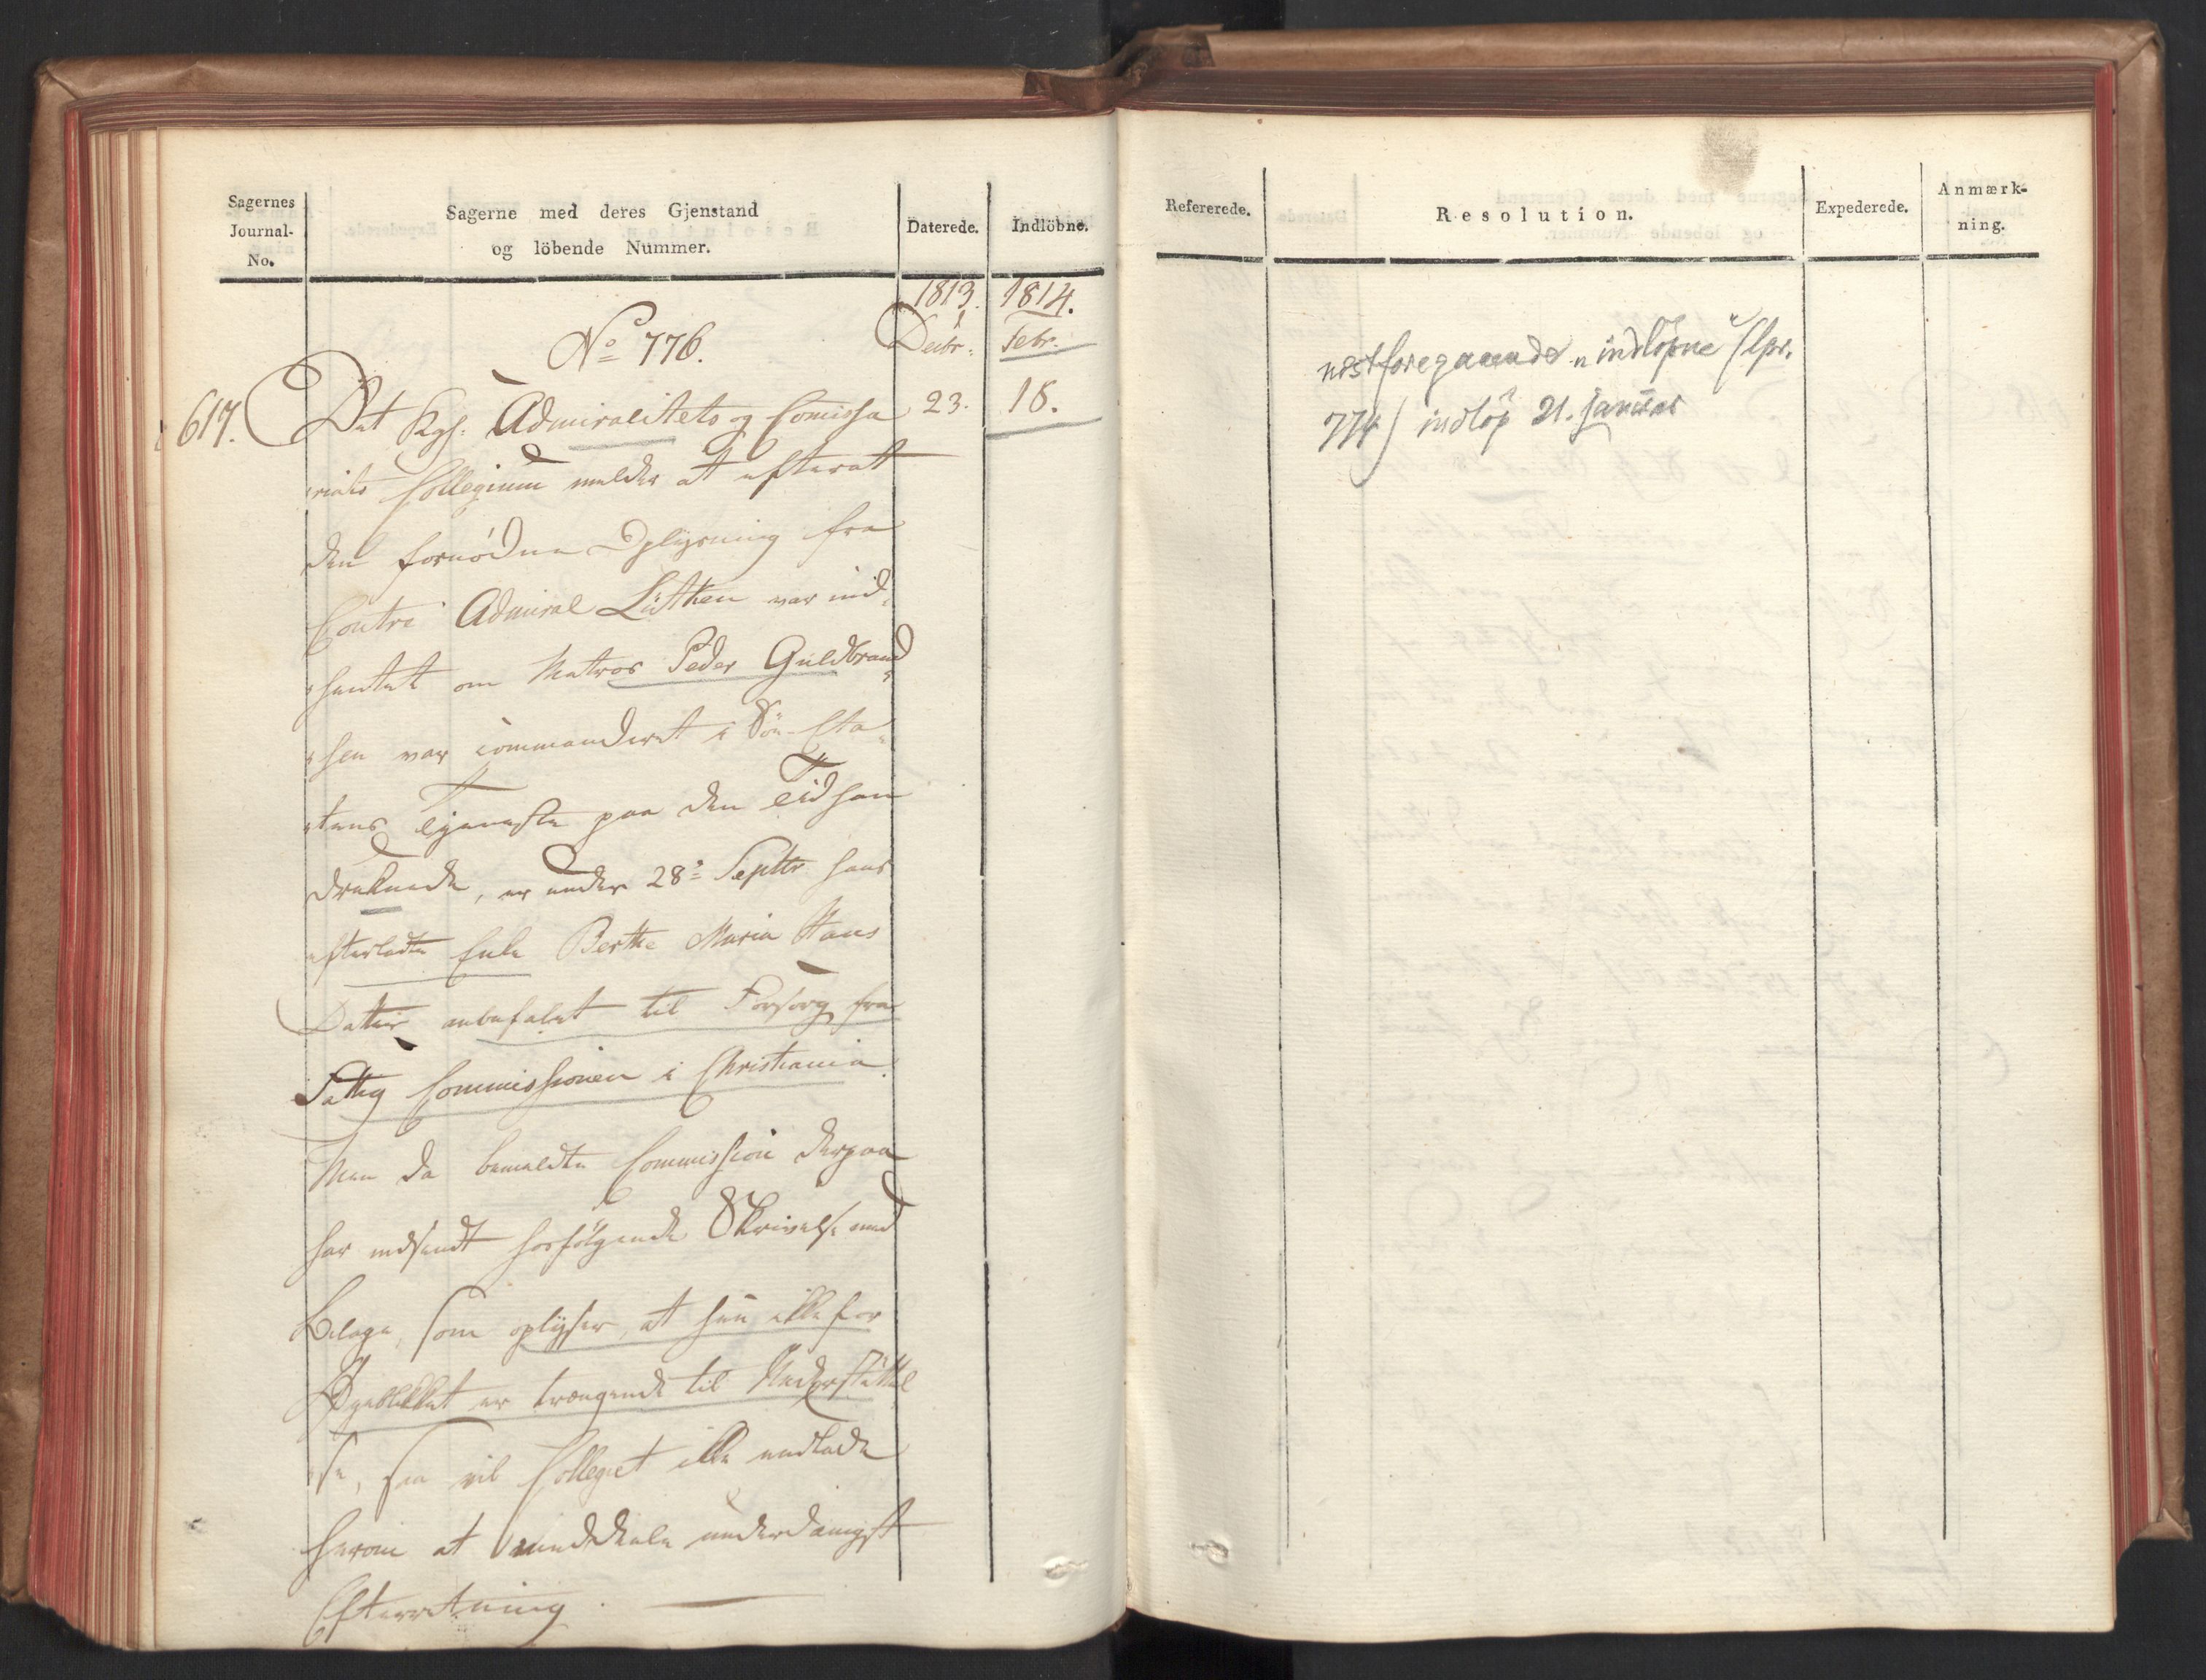 Sagernes
Journal-
No.
Sagerne med deres Gjenstand
og löbende Nummer.
Daterede.
Indlöbne.
1813.
1814.
Decbr:
Febr.
No 776.
617.
Det Kgl: Admiralitets og Comissa
23.
18.
riats Collegium melder at efterat
den fornödne Oplysning fra
Contre Admiral Lütken var ind,
hentet om Matros Peder Guldbrand,
sen var commanderet i Söe-Eta,
tens Tjeneste paa den Tid han
druknede, er under 28de Septbr hans
efterladte Enke Berthe Maria Hans
Datter anbefalet til Forsorg fra
Fattig Commissionen i Christiania.
Men da bemeldte Commission derpaa
har indsendt hosfölgende Skrivelse med
Bilage, som oplyser, at hun ikke for
Öyeblikket er trængende til Understöttel
se, saa vil Collegiet ikke undlade
herom at meddeele underdanigst
Efterretning.
Refererede.
Resolution.
Expederede.
Anmærk-
ning.
nestforegaaende "indlöpne" (lpr.
774) indlöp 21. januar